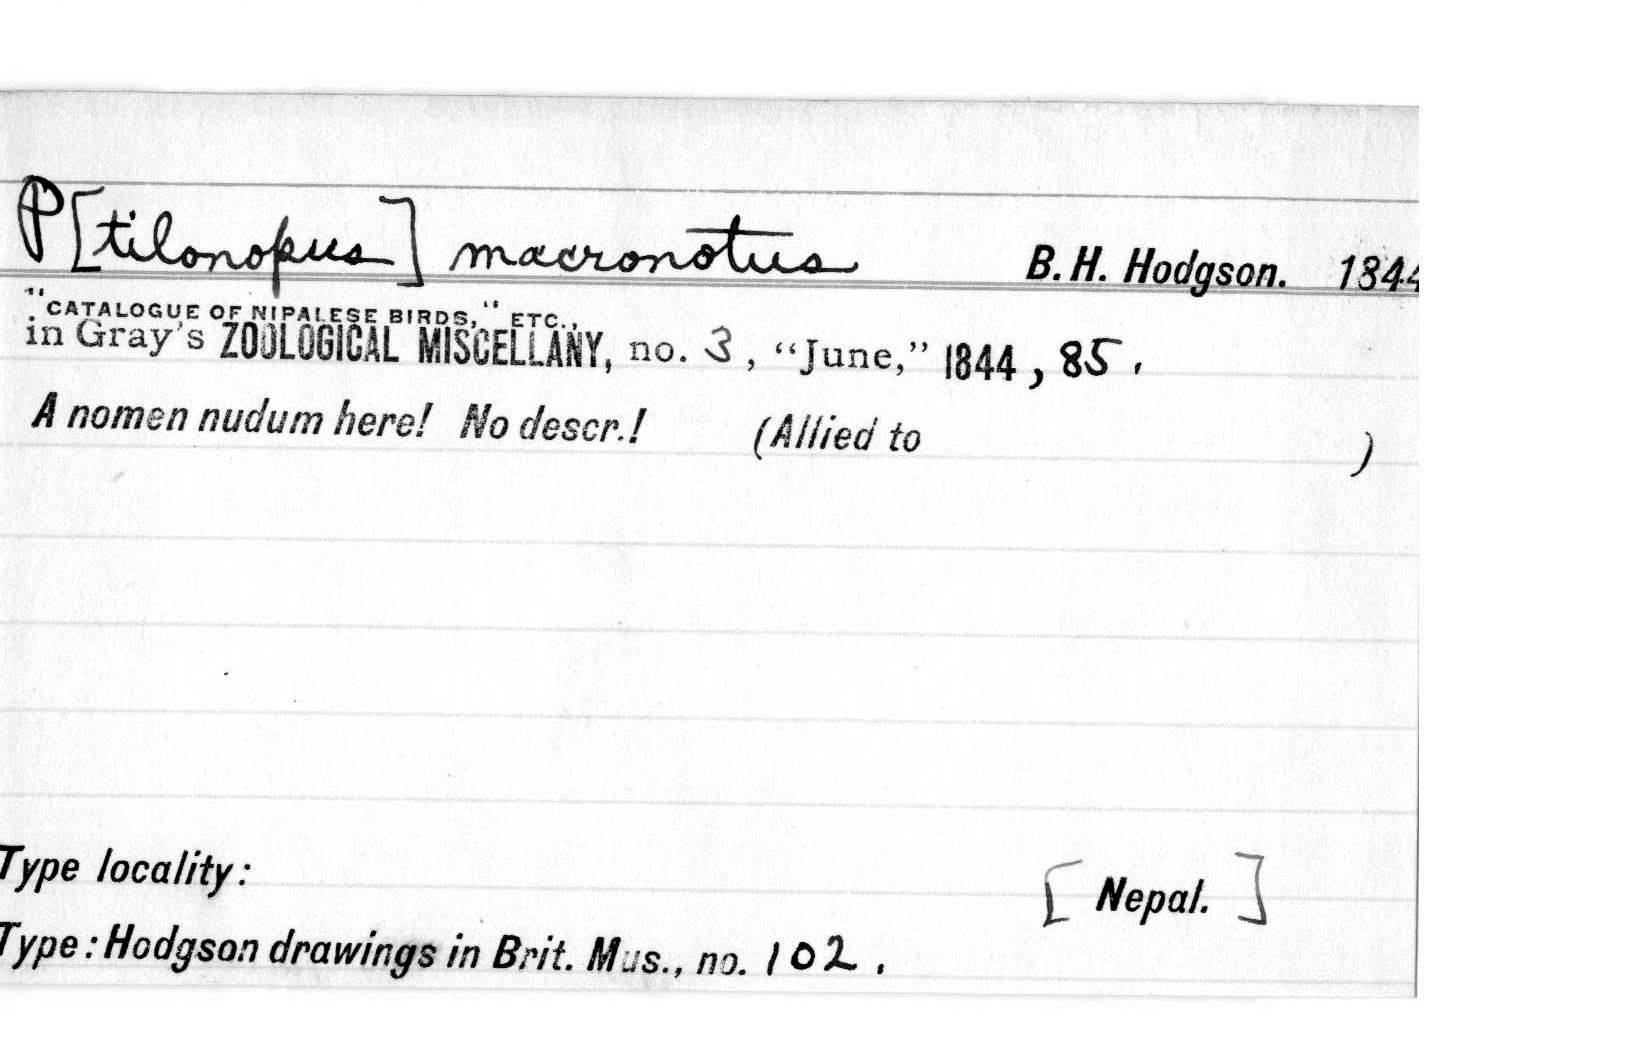 P[tilonopus] macronotus B. H. Hodgson. 1844
"CATALOGUE OF NIPALESE BIRDS," ETC.,
in Gray's ZOOLOGICAL MISCELLANY, no. 3, "June," 1844, 85.
A nomen nudum here! No descr.! (Allied to )
Type locality: [Nepal.]
Type: Hodgson drawings in Brit. Mus., no. 102.